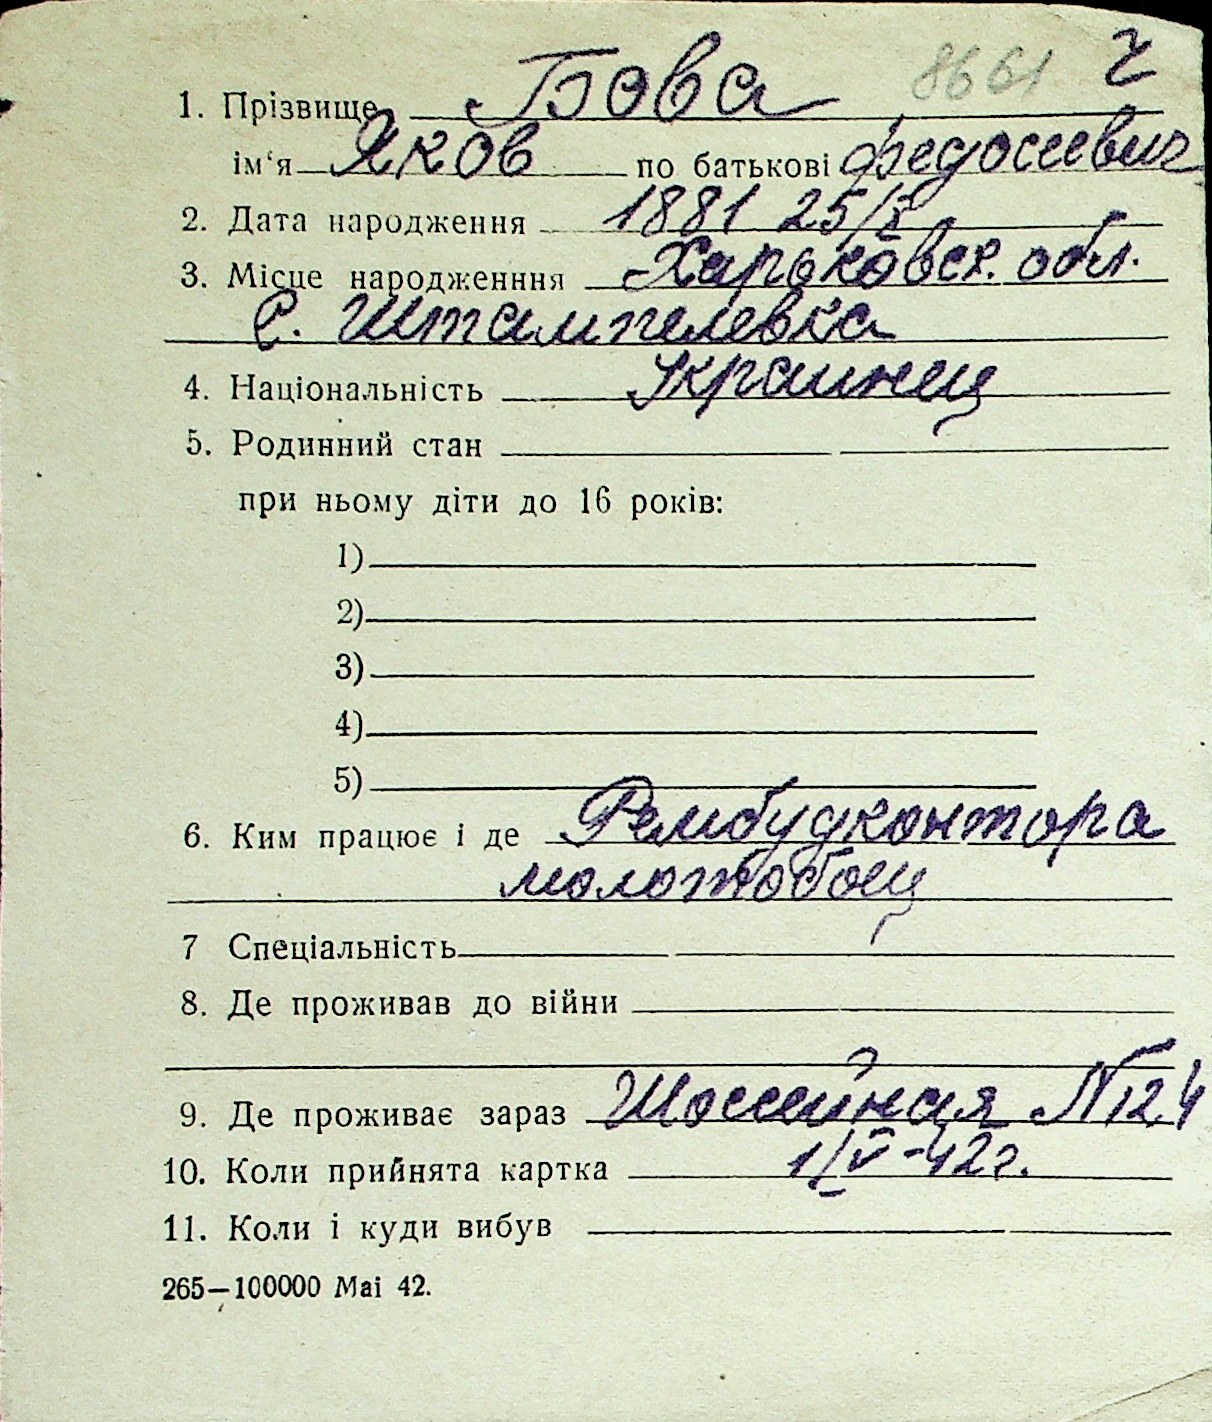 8661 ч
1. Прізвище Бова
ім‘я Яков по батькові Федосеевич
2. Дата народження 1881 25/X
3. Місце народженння Харьковск. обл.
с. Штампелевка
4. Національність Украинец
5. Родинний стан
при ньому діти до 16 років:
1)
2)
3)
4)
5)
6. Ким працює і де Рембудконтора
молотобоец
7 Спеціальність
8. Де проживав до війни
9. Де проживає зараз Шоссейная № 124
10. Коли прийнята картка 1/V-42г.
11. Коли і куди вибув
265—100000 Mai 42.